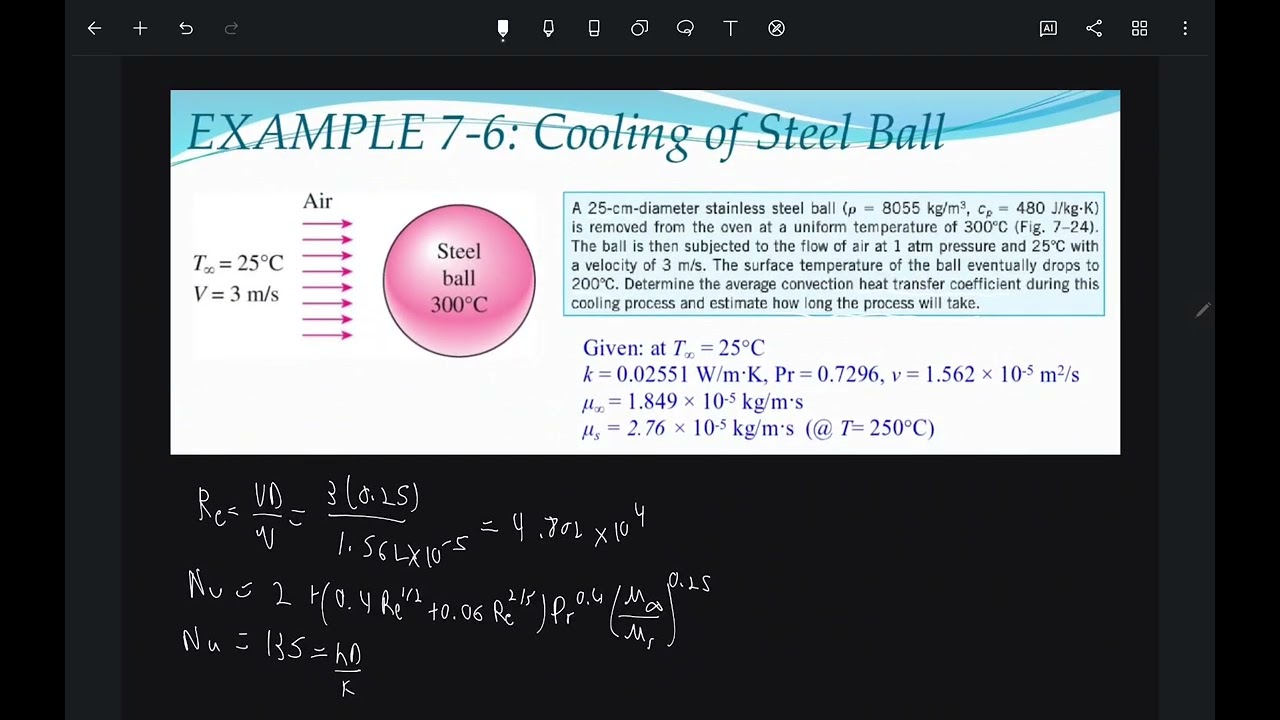 EXAMPLE 7-6: Cooling of Steel Ball
Air
T∞ = 25°C
V = 3 m/s
Steel
ball
300°C
A 25-cm-diameter stainless steel ball (ρ = 8055 kg/m³, cₚ = 480 J/kg·K)
is removed from the oven at a uniform temperature of 300°C (Fig. 7–24).
The ball is then subjected to the flow of air at 1 atm pressure and 25°C with
a velocity of 3 m/s. The surface temperature of the ball eventually drops to
200°C. Determine the average convection heat transfer coefficient during this
cooling process and estimate how long the process will take.
Given: at T∞ = 25°C
k = 0.02551 W/m·K, Pr = 0.7296, ν = 1.562 × 10⁻⁵ m²/s
μ∞ = 1.849 × 10⁻⁵ kg/m·s
μₛ = 2.76 × 10⁻⁵ kg/m·s (@ T= 250°C)
Re = VD/ν = 3(0.25)/1.562×10⁻⁵ = 4.802×10⁴
Nu = 2 + (0.4 Re^1/2 + 0.06 Re^2/3) Pr^0.4 (μ∞/μₛ)^0.25
Nu = 135 = hD/k
AI
T